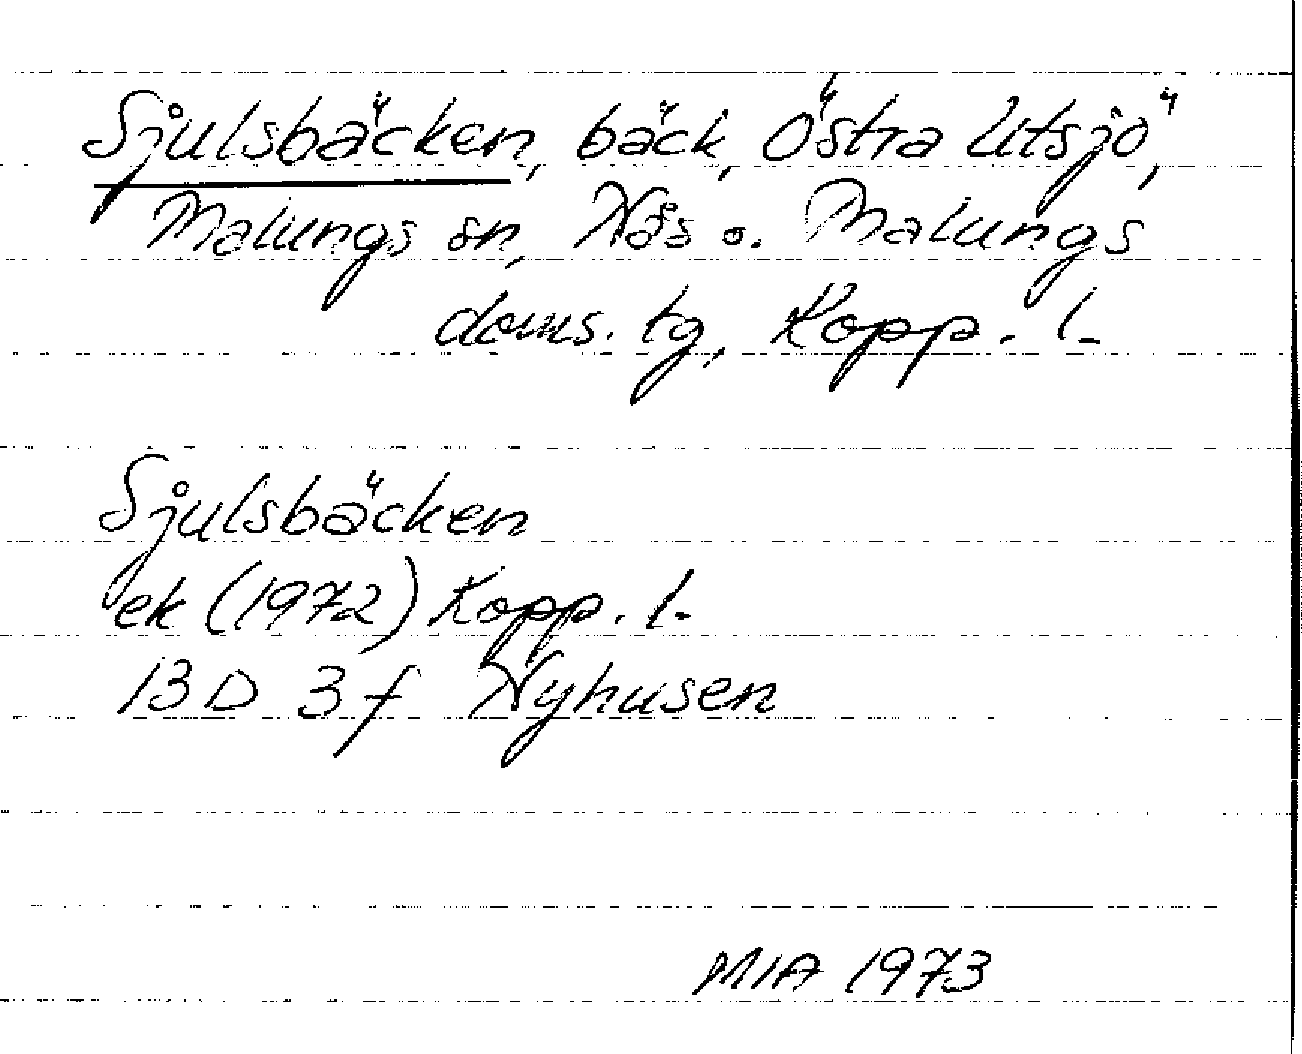 Sjulsbäcken, bäck, Östra Utsjö,
Malungs sn, Nås o. Malungs
doms. tg, Kopp. l.
Sjulsbäcken
ek (1972) Kopp. l.
13 D 3 f Nyhusen
MIA 1973